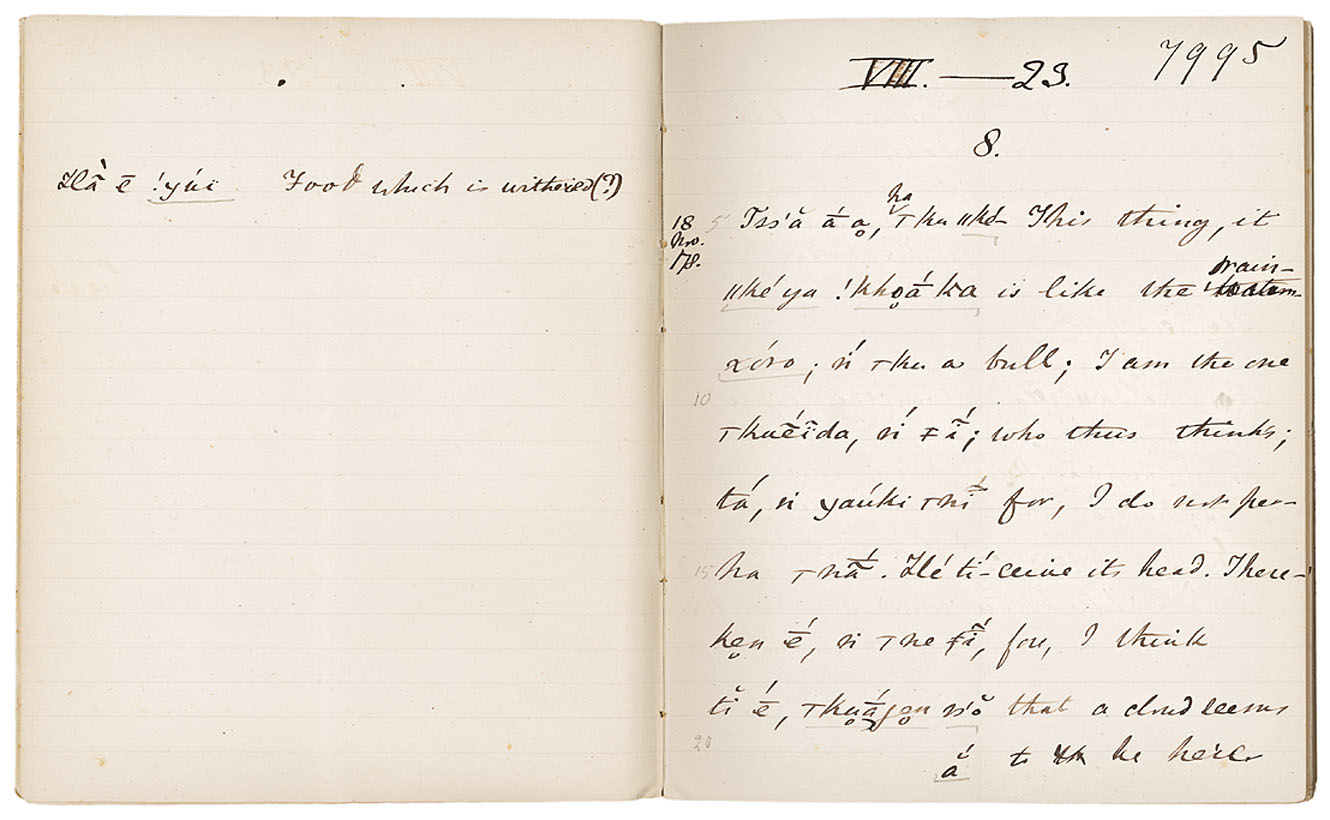 Hā̀ ē !γúï Food which is withered(?)
VIII. — 23. 7995
8.
18 Nov. 78. 5 Tss'ă á a̤, ha ꞇku ǁké- This thing, it
ǁké ya !kho̤á ka is like the rain-
xóro; ń ꞇku a bull; I am the one
10
ꞇku ida, ń ; who thus thinks;
tá, n yaúki for, I do not per-
15 ha ꞇnā́. Hé tí- ceive its head. There-
ke̤n ḗ, n ꞇne , for, I think
tĭ ḗ, that a cloud seems
20
ā́ to be here